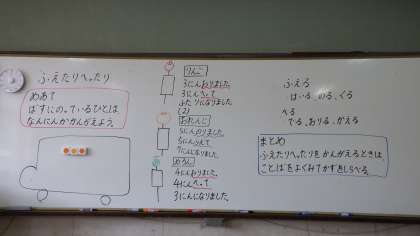 ふえたりへったり
めあて
ばすにのっているひとは
なんにんかかんがえよう。
りんご
3にんおりました。
3にんへって
ふたりになりました
(2)
おれんじ
5にんのりました。
5にんふえて
7にんになりました
めろん
4にんおりました。
4にんへって
3にんになりました。
ふえる
はいる、のる、くる
へる
でる、おりる、かえる
まとめ
ふえたりへったりをかんがえるときは
ことばをよくみてかずをしらべる。